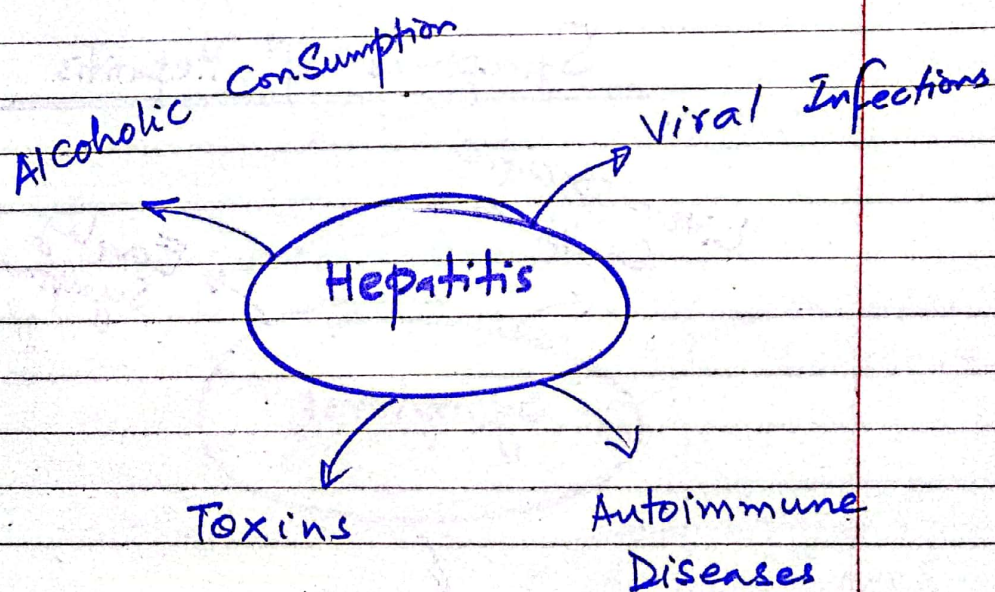 Alcoholic Consumption
Viral Infections
Hepatitis
Toxins
Autoimmune
Diseases